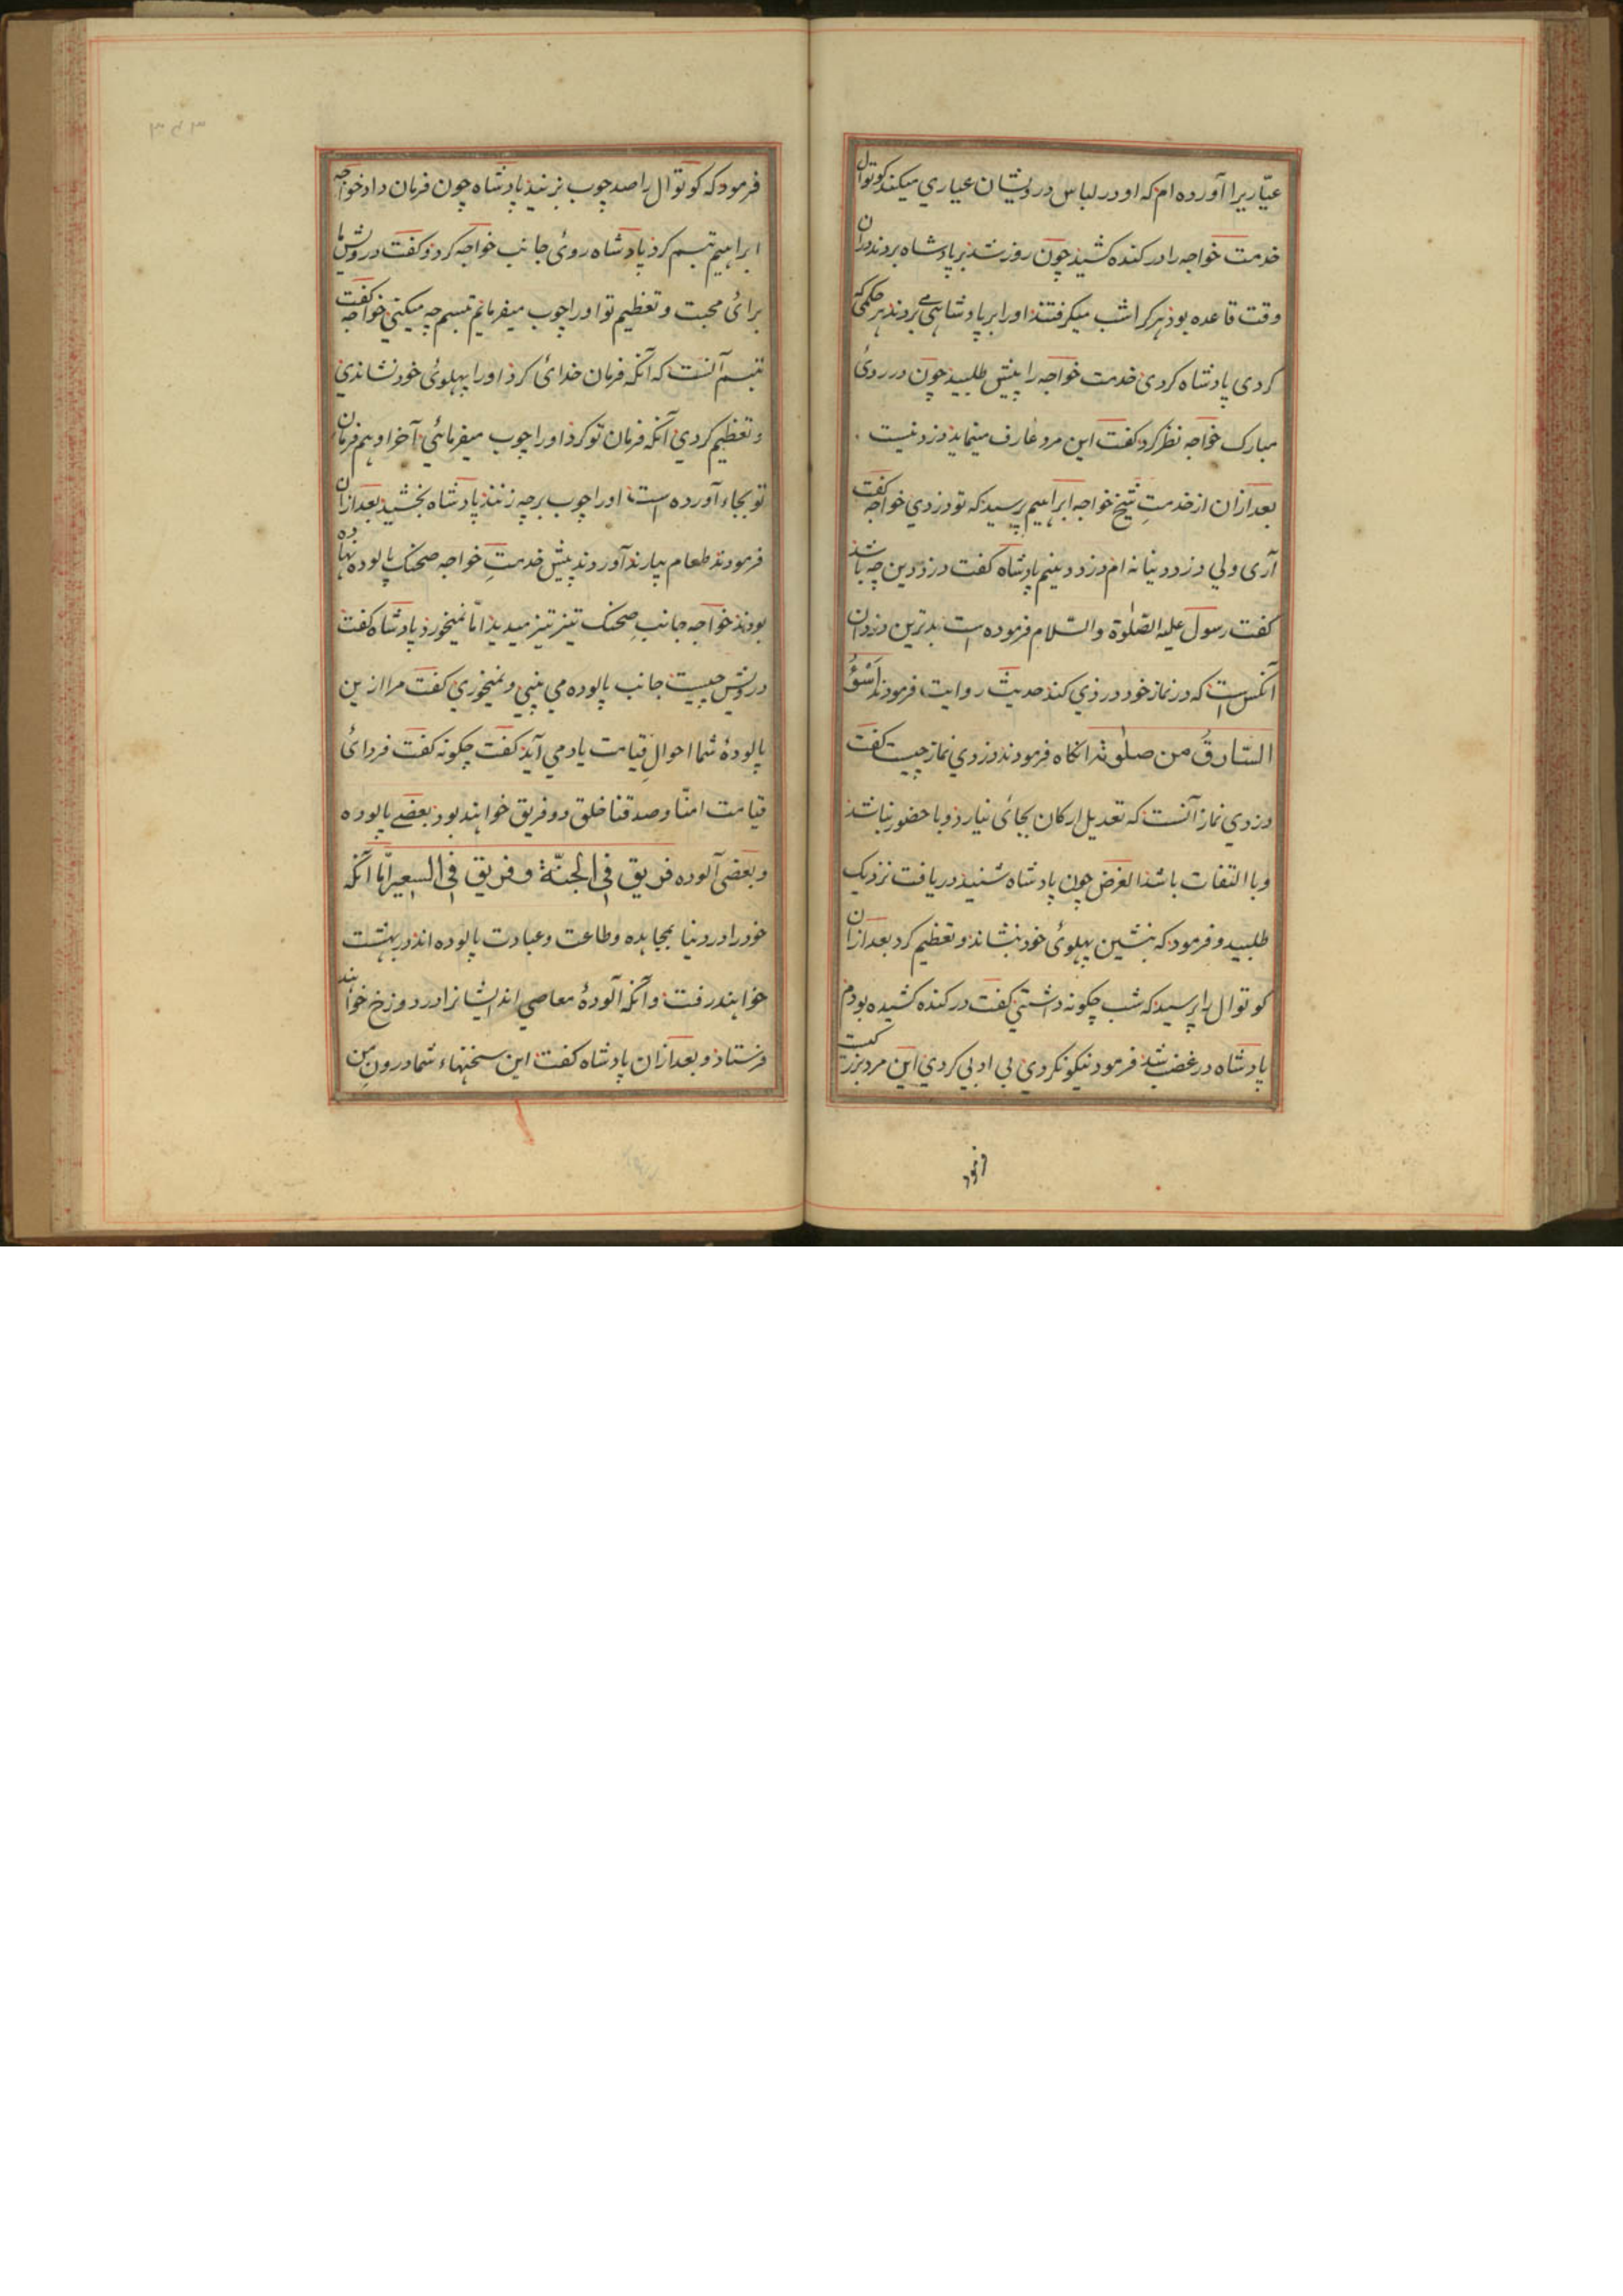 عیّاریرا آورده ام که او در لباس درویشان عیاري میکند کوتوال
خدمت خواجه را در کنده کشیذ چون روز شذ بر پادشاه بردند دران
وقت قاعده بوذ هر کرا شب میکرفتند او را بر پادشاهی می بردند هر حکمی که
کردی پادشاه کردی خدمت خواجه را پیش طلبیذ چون در روئ
مبارک خواجه نظر کرد کفت این مرد عارف مینماید دزد نیست
بعد ازان از خدمتِ شیخ خواجه ابراهیم پرسید که تو دزدي خواجه کفت
آری ولي دزد دنیا نه ام دزد دینیم پادشاه کفت دزد دین چه باشذ
کفت رسول علیه الصّلوة والسّلام فرموده است بدترین دزدان
آنکس است که در نماز خود دزذي کند حدیث روایت فرمودند اَسْوَؤُ
السّارقُ من صلوٰته انکاه فرمودند دزدي نماز چیست کفت
دزدي نماز آنست که تعدیل ارکان بجائ نیارذ و با حضور نباشذ
و با التفات باشذ الغرض چون پادشاه شنیذ دریافت نزدیک
طلبید و فرمود که بنشین پهلوئ خود نشاند و تعظیم کرد بعد ازان
کوتوال را پرسید که شب چکونه داشتي کفت در کنده کشیده بودم
پادشاه در غضب شذ فرمود نیکو نکردي بی ادبي کردي این مرد بزرکست
فرمود
۳۴۳
فرمود که کوتوال را صد چوب بزنیذ پادشاه چون فرمان داد خواجه
ابراهیم تبسم کرد پادشاه روئ جانب خواجه کرد و کفت درویش ما
برائ محبت و تعظیم تو او را چوب میفرمائیم تبسم چه میکني خواجه کفت
تبسم آنست که آنکه فرمان خدائ کرذ او را پهلوئ خود نشاندي
و تعظیم کردي آنکه فرمان تو کرد او را چوب میفرمائي آخر او هم فرمان
تو بجاء آورده است او را چوب بر چه زنند پادشاه بخشید بعد ازان
فرمودند طعام بیارند آوردند پیش خدمتِ خواجه صحنک پالوده نهاده
بودند خواجه جانبِ صحنک تیز تیز میدیذ امّا نمیخورذ پادشاه کفت
درویش چیست جانب پالوده مي بیني و نمیخوري کفت مرا ازین
پالودهٔ شما احوالِ قیامت یاد مي آید کفت چکونه کفت فردائ
قیامت امنّا و صدقنا خلق دو فریق خواهند بود بعضے پالوده
و بعضي آلوده فریق في الجنّة و فریق في السعیر امّا آنکه
خود را در دنیا بمجاهده و طاعت و عبادت پالوده اند در بهشت
خواهند رفت و آنکه آلودهٔ معاصي اند ایشانرا در دوزخ خواهند
فرستاد و بعد ازان پادشاه کفت این سخنهاء شما درونِ من